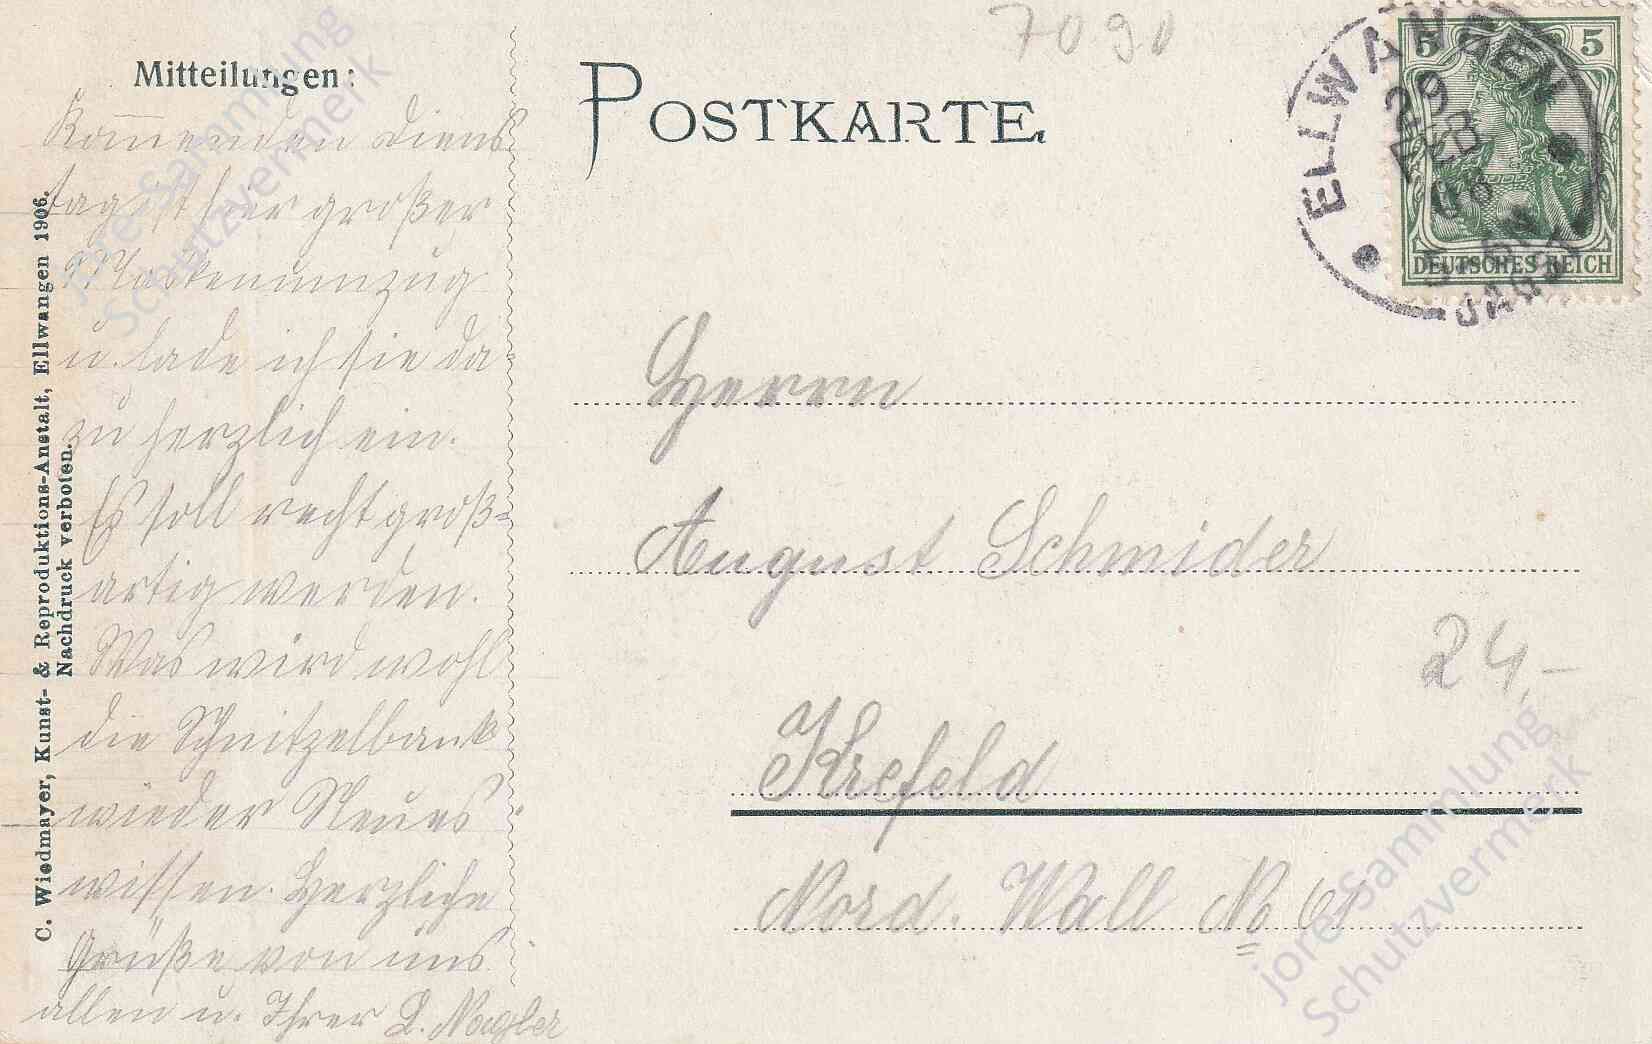 7090
Mitteilungen:
POSTKARTE
ELLWANGEN
29
FEB
JAGST
5 5
DEUTSCHES REICH
Kommenden Diens
tag ist hier großer
Maskenumzug
u. lade ich sie da-
zu herzlich ein.
Es soll recht groß=
artig werden.
Was wird wohl
die Schnitzelbank
wieder Neues
wissen. Herzliche
Grüße von uns
allen u. Ihrer L. Nagler
C. Wiedmayer, Kunst- & Reproduktions-Anstalt, Ellwangen 1906.
Nachdruck verboten.
Herrn
August Schmider
24,-
Krefeld
Nord. Wall No 61
jore-Sammlung
Schutzvermerk
jore-Sammlung
Schutzvermerk